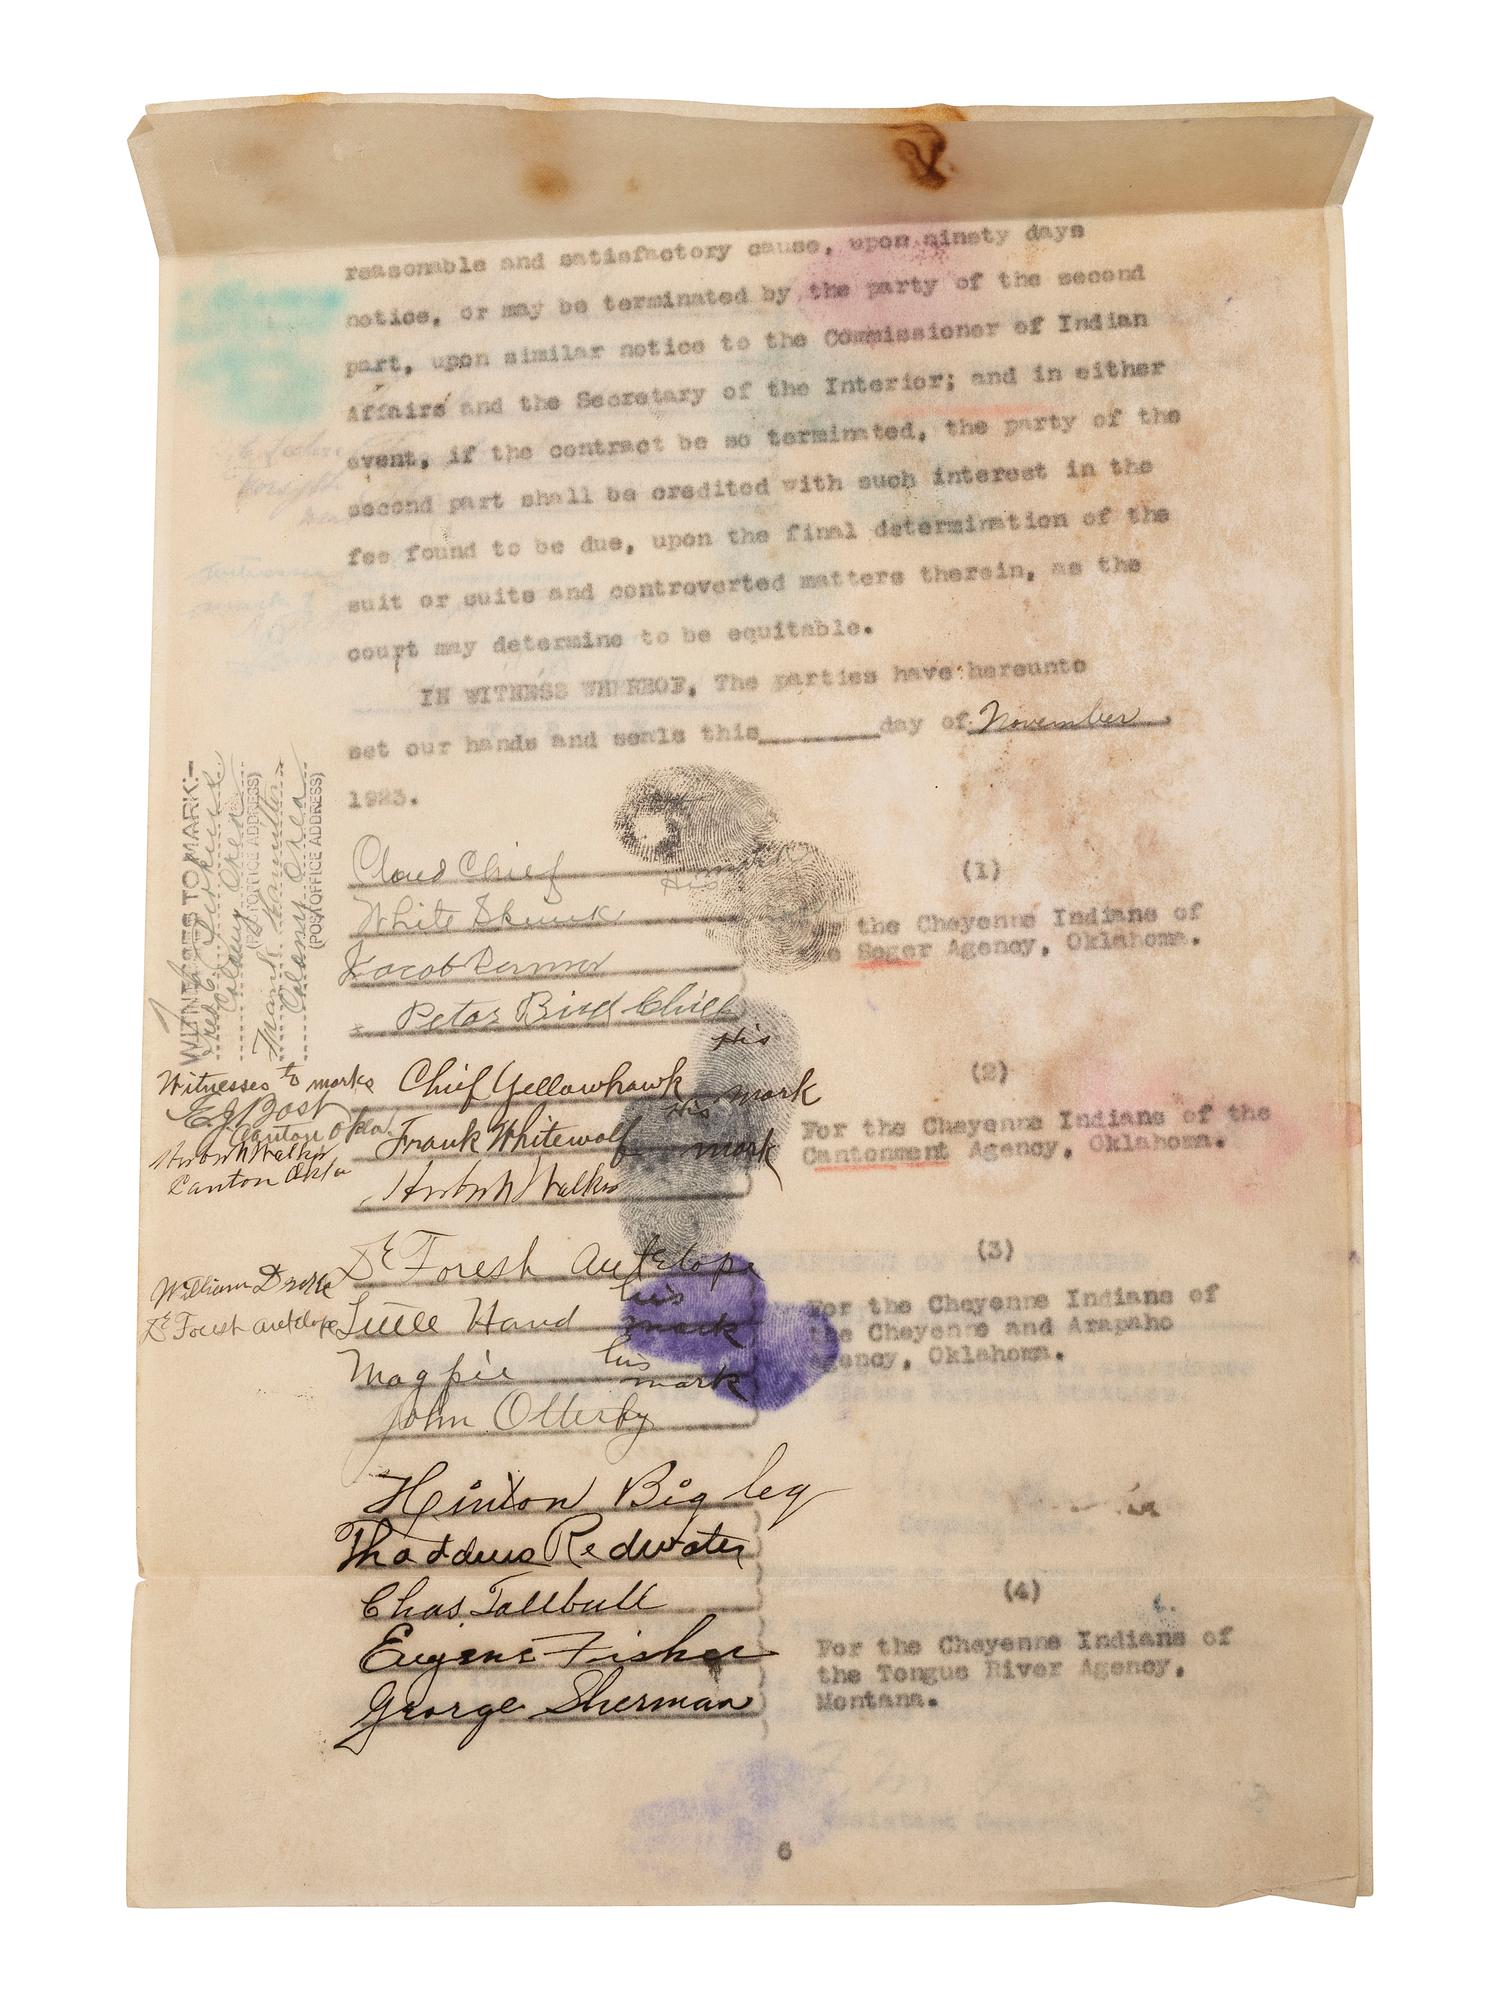 reasonable and satisfactory cause, upon ninety days
notice, or may be terminated by the party of the second
part, upon similar notice to the Commissioner of Indian
Affairs and the Secretary of the Interior; and in either
event, if the contract be so terminated, the party of the
second part shall be credited with such interest in the
fee found to be due, upon the final determination of the
suit or suits and controverted matters therein, as the
court may determine to be equitable.
IN WITNESS WHEREOF, The parties have hereunto
set our hands and seals this day of November,
1923.
WITNESSES TO MARK:-
Colony Okla
(POST OFFICE ADDRESS)
Frank Hamilton
Colony Okla
(POST OFFICE ADDRESS)
Cloud Chief
His mark
White Skunk
Jacob
Peter Bird Chief
(1)
the Cheyenne Indians of
the Seger Agency, Oklahoma.
Witnesses to marks
E. J. Bost
Canton Okla.
Walker
Canton Okla
Chief Yellowhawk His mark
Frank Whitewolf His mark
Walker
(2)
For the Cheyenne Indians of the
Cantonment Agency, Oklahoma.
William
De Forest Antelope
De Forest Antelope
Little Hand his mark
Magpie his mark
John Otterby
(3)
For the Cheyenne Indians of
the Cheyenne and Arapaho
Agency, Oklahoma.
Hinton Big leg
Thaddeus Redwater
Chas Tallbull
Eugene Fisher
George Sherman
(4)
For the Cheyenne Indians of
the Tongue River Agency,
Montana.
6